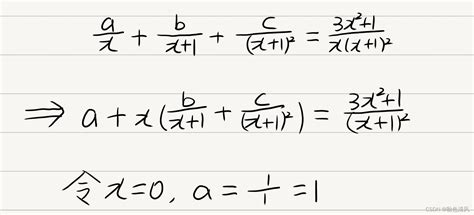 a/x + b/(x+1) + c/(x+1)² = (3x²+1)/(x(x+1)²)
⇒ a + x(b/(x+1) + c/(x+1)²) = (3x²+1)/(x+1)²
令x=0, a = 1/1 = 1